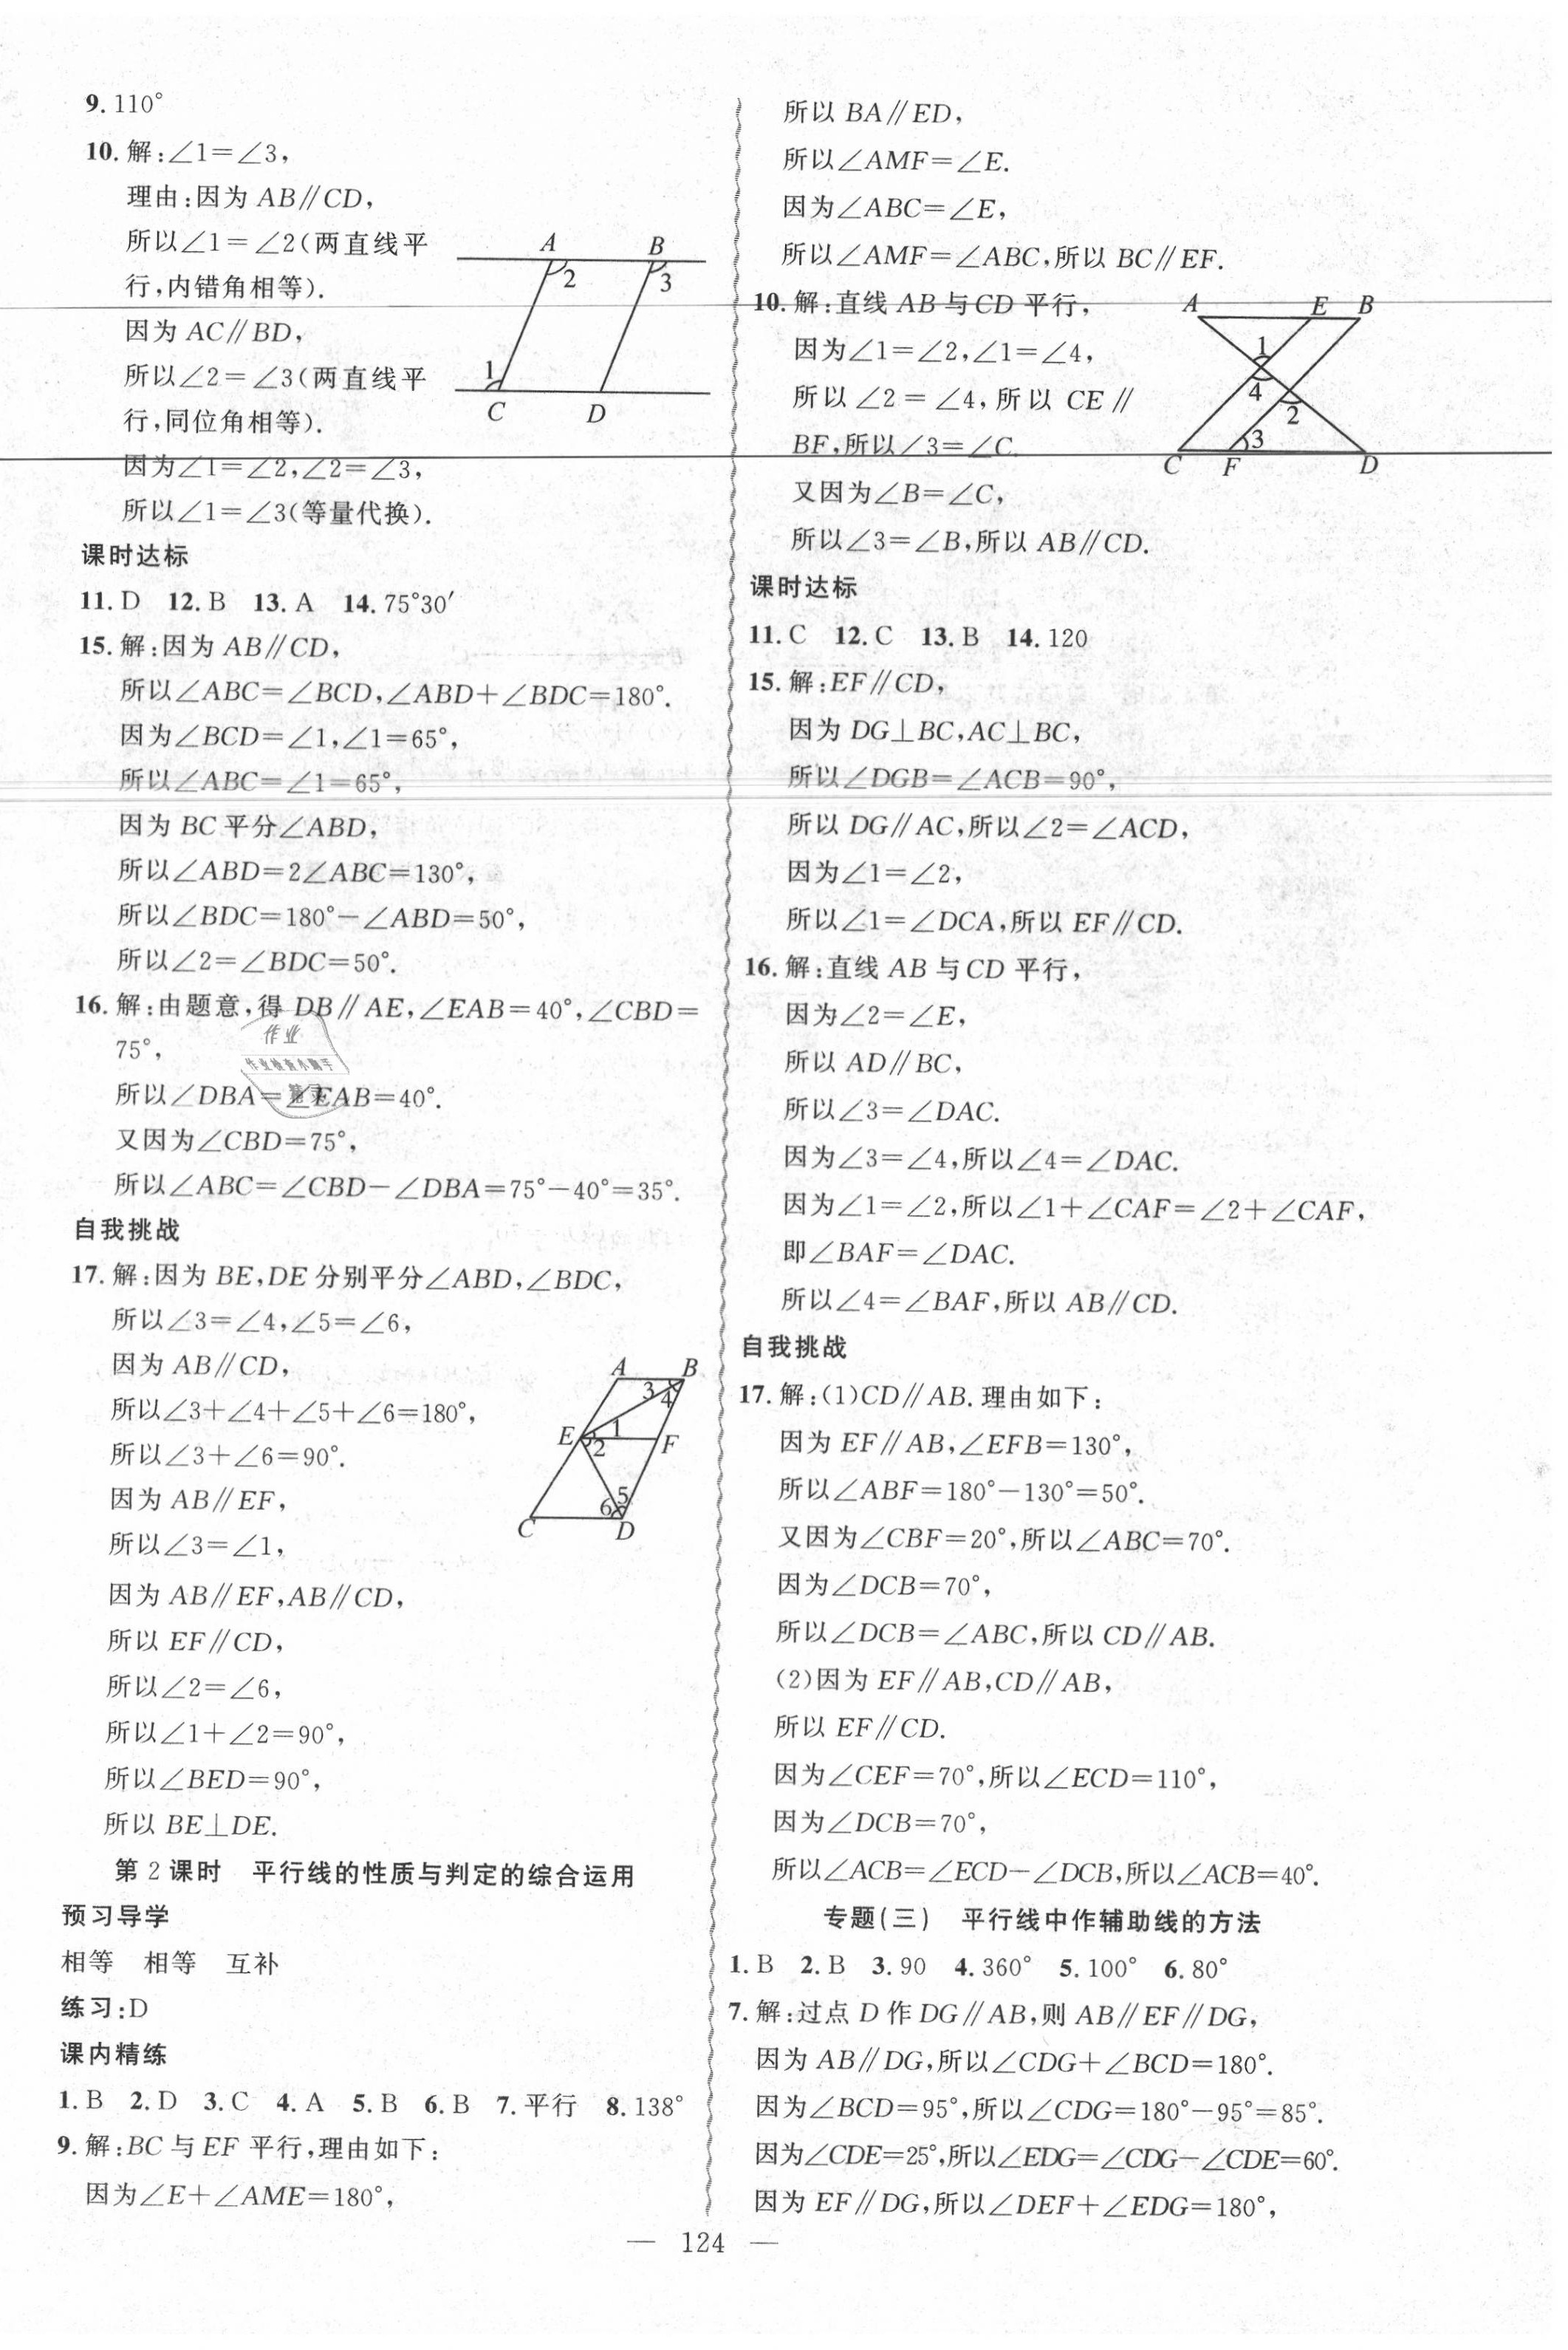 9. 110°
10. 解:∠1=∠3,
理由:因为 AB∥CD,
所以∠1=∠2(两直线平
行,内错角相等).
因为 AC∥BD,
所以∠2=∠3(两直线平
行,同位角相等).
因为∠1=∠2,∠2=∠3,
所以∠1=∠3(等量代换).
A B
2 3
1
C D
课时达标
11. D 12. B 13. A 14. 75°30′
15. 解:因为 AB∥CD,
所以∠ABC=∠BCD,∠ABD+∠BDC=180°.
因为∠BCD=∠1,∠1=65°,
所以∠ABC=∠1=65°,
因为 BC 平分∠ABD,
所以∠ABD=2∠ABC=130°,
所以∠BDC=180°-∠ABD=50°,
所以∠2=∠BDC=50°.
16. 解:由题意,得 DB∥AE,∠EAB=40°,∠CBD=
75°,
所以∠DBA=∠EAB=40°.
又因为∠CBD=75°,
所以∠ABC=∠CBD-∠DBA=75°-40°=35°.
作业
自我挑战
17. 解:因为 BE,DE 分别平分∠ABD,∠BDC,
所以∠3=∠4,∠5=∠6,
因为 AB∥CD,
所以∠3+∠4+∠5+∠6=180°,
所以∠3+∠6=90°.
因为 AB∥EF,
所以∠3=∠1,
因为 AB∥EF,AB∥CD,
所以 EF∥CD,
所以∠2=∠6,
所以∠1+∠2=90°,
所以∠BED=90°,
所以 BE⊥DE.
A B
3 4
E 1 F
2
5
6
C D
第 2 课时 平行线的性质与判定的综合运用
预习导学
相等 相等 互补
练习:D
课内精练
1. B 2. D 3. C 4. A 5. B 6. B 7. 平行 8. 138°
9. 解:BC 与 EF 平行,理由如下:
因为∠E+∠AME=180°,
所以 BA∥ED,
所以∠AMF=∠E.
因为∠ABC=∠E,
所以∠AMF=∠ABC,所以 BC∥EF.
10. 解:直线 AB 与 CD 平行,
因为∠1=∠2,∠1=∠4,
所以∠2=∠4,所以 CE∥
BF,所以∠3=∠C.
又因为∠B=∠C,
所以∠3=∠B,所以 AB∥CD.
A E B
1
4 2
3
C F D
课时达标
11. C 12. C 13. B 14. 120
15. 解:EF∥CD,
因为 DG⊥BC,AC⊥BC,
所以∠DGB=∠ACB=90°,
所以 DG∥AC,所以∠2=∠ACD,
因为∠1=∠2,
所以∠1=∠DCA,所以 EF∥CD.
16. 解:直线 AB 与 CD 平行,
因为∠2=∠E,
所以 AD∥BC,
所以∠3=∠DAC.
因为∠3=∠4,所以∠4=∠DAC.
因为∠1=∠2,所以∠1+∠CAF=∠2+∠CAF,
即∠BAF=∠DAC.
所以∠4=∠BAF,所以 AB∥CD.
自我挑战
17. 解:(1)CD∥AB. 理由如下:
因为 EF∥AB,∠EFB=130°,
所以∠ABF=180°-130°=50°.
又因为∠CBF=20°,所以∠ABC=70°.
因为∠DCB=70°,
所以∠DCB=∠ABC,所以 CD∥AB.
(2)因为 EF∥AB,CD∥AB,
所以 EF∥CD.
因为∠CEF=70°,所以∠ECD=110°,
因为∠DCB=70°,
所以∠ACB=∠ECD-∠DCB,所以∠ACB=40°.
专题(三) 平行线中作辅助线的方法
1. B 2. B 3. 90 4. 360° 5. 100° 6. 80°
7. 解:过点 D 作 DG∥AB,则 AB∥EF∥DG,
因为 AB∥DG,所以∠CDG+∠BCD=180°.
因为∠BCD=95°,所以∠CDG=180°-95°=85°.
因为∠CDE=25°,所以∠EDG=∠CDG-∠CDE=60°.
因为 EF∥DG,所以∠DEF+∠EDG=180°,
— 124 —